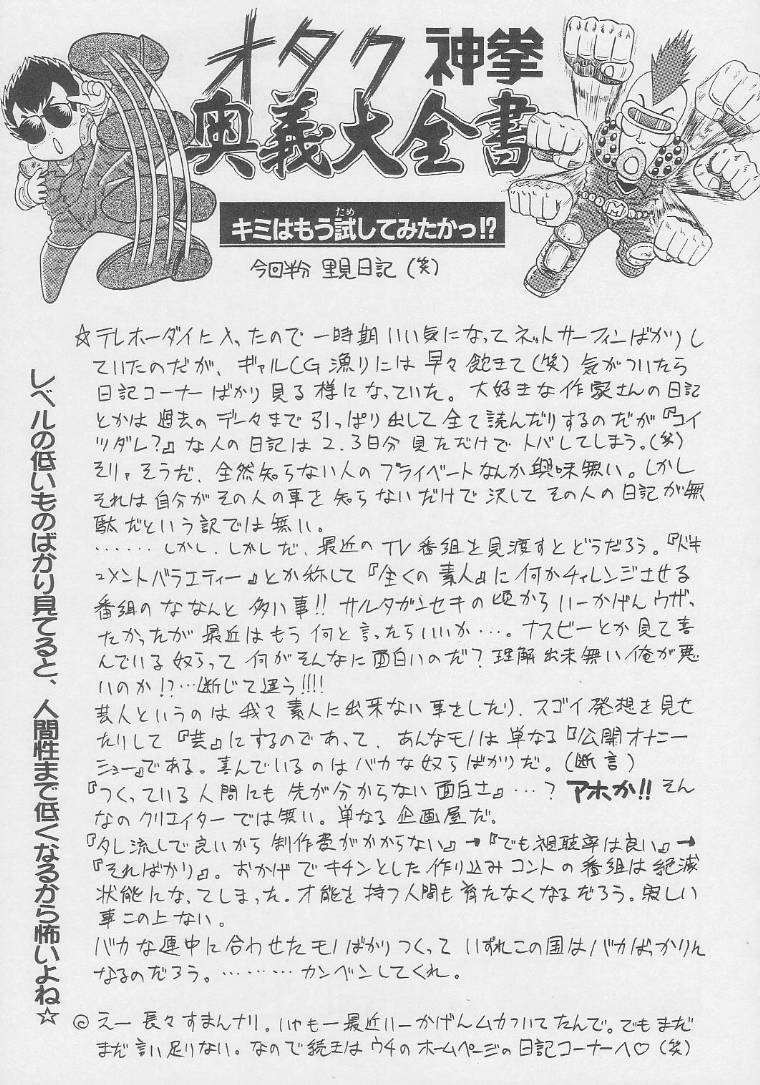 オタク神拳
奥義大全書
キミはもう試してみたかっ!?
ため
今回半分 里見日記(笑)
☆テレホーダイに入ったので一時期いい気になってネットサーフィンばかりし
ていたのだが、ギャルCG漁りには早々飽きて(笑)気がついたら
日記コーナーばかり見る様になっていた。大好きな作家さんの日記
とかは過去のデータまで引っぱり出して全て読んだりするのだが『コイ
ツダレ?』な人の日記は2.3日分見ただけでトバしてしまう。(笑)
そりゃそうだ、全然知らない人のプライベートなんか興味無い。しかし
それは自分がその人の事を知らないだけで決してその人の日記が無
駄だという訳では無い。
……しかし、しかしだ、最近のTV番組を見渡すとどうだろう。『ドキ
ュメントバラエティー』とか称して『全くの素人』に何かチャレンジさせる
番組のななんと多い事!!サルガンセキの頃からいーかげんウザっ
たかったが最近はもう何と言ったらいいか…。ナスビーとか見て喜
んでいる奴らって何がそんなに面白いのだ?理解出来無い俺が悪
いのか!?…断じて違う!!!!
芸人というのは我々素人に出来ない事をしたり、スゴイ発想を見せ
たりして『芸』にするのであって、あんなモノは単なる『公開オナニー
ショー』である。喜んでいるのはバカな奴らばかりだ。(断言)
『つくっている人間にも先が分からない面白さ』…?アホか!!そん
なのクリエイターでは無い。単なる企画屋だ。
『タレ流しで良いから制作費がかからない』→『でも視聴率は良い』→
『そればかり』。おかげでキチンとした作り込みコントの番組は絶滅
状態になってしまった。才能を持つ人間も育たなくなるだろう。寂しい
事この上ない。
バカな連中に合わせたモノばかりつくっていずれこの国はバカばっかりん
なるのだろう。………カンベンしてくれ。
◎えー長々すまんナリ。いやもー最近いーかげんムカついてたんで。でもまだ
まだ言い足りない。なので続きはウチのホームページの日記コーナーへ♡(笑)
レベルの低いものばかり見てると、人間性まで低くなるから怖いよね☆
M